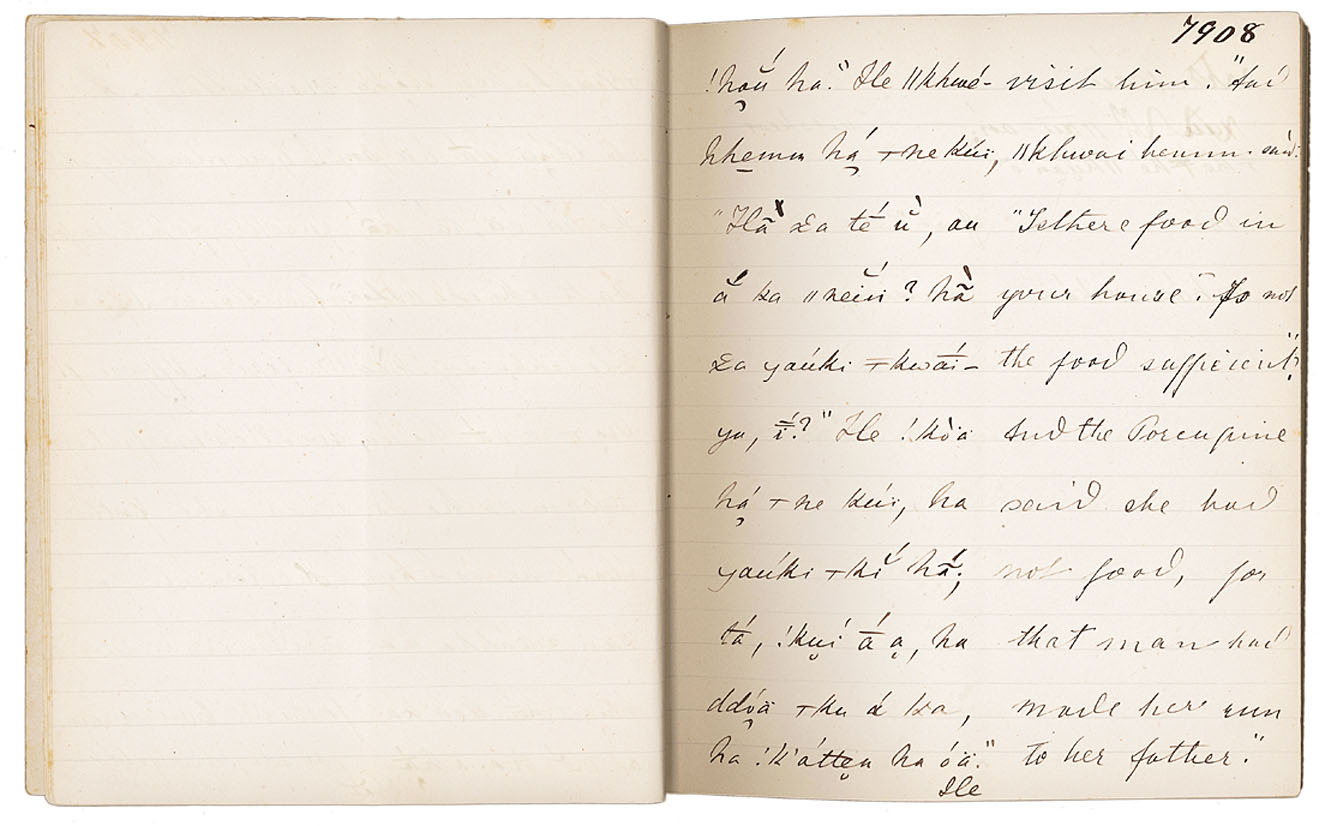 7908
!hăú ha." He ǁkhwé- visit him." And
hhemm há ⊤ne kúï, ǁkhwai hemm. said:
"Hã̀ xa té ŭ̀, au "Is there food in
ắ ka ǁneíŋ? hã̀ your house? Is not
xa yaúki ⊤kwā́i- the food sufficient?"
ya, ī́?" He !kòä And the Porcupine
há ⊤ne kúï, ha said she had
yaúki ⊤kĭ́ hã́; not food, for
tā́, !kuí ā́ a, ha that man had
ddóä ⊤ku á ka, made her run
ha !k'átten ha óä." to her father."
He